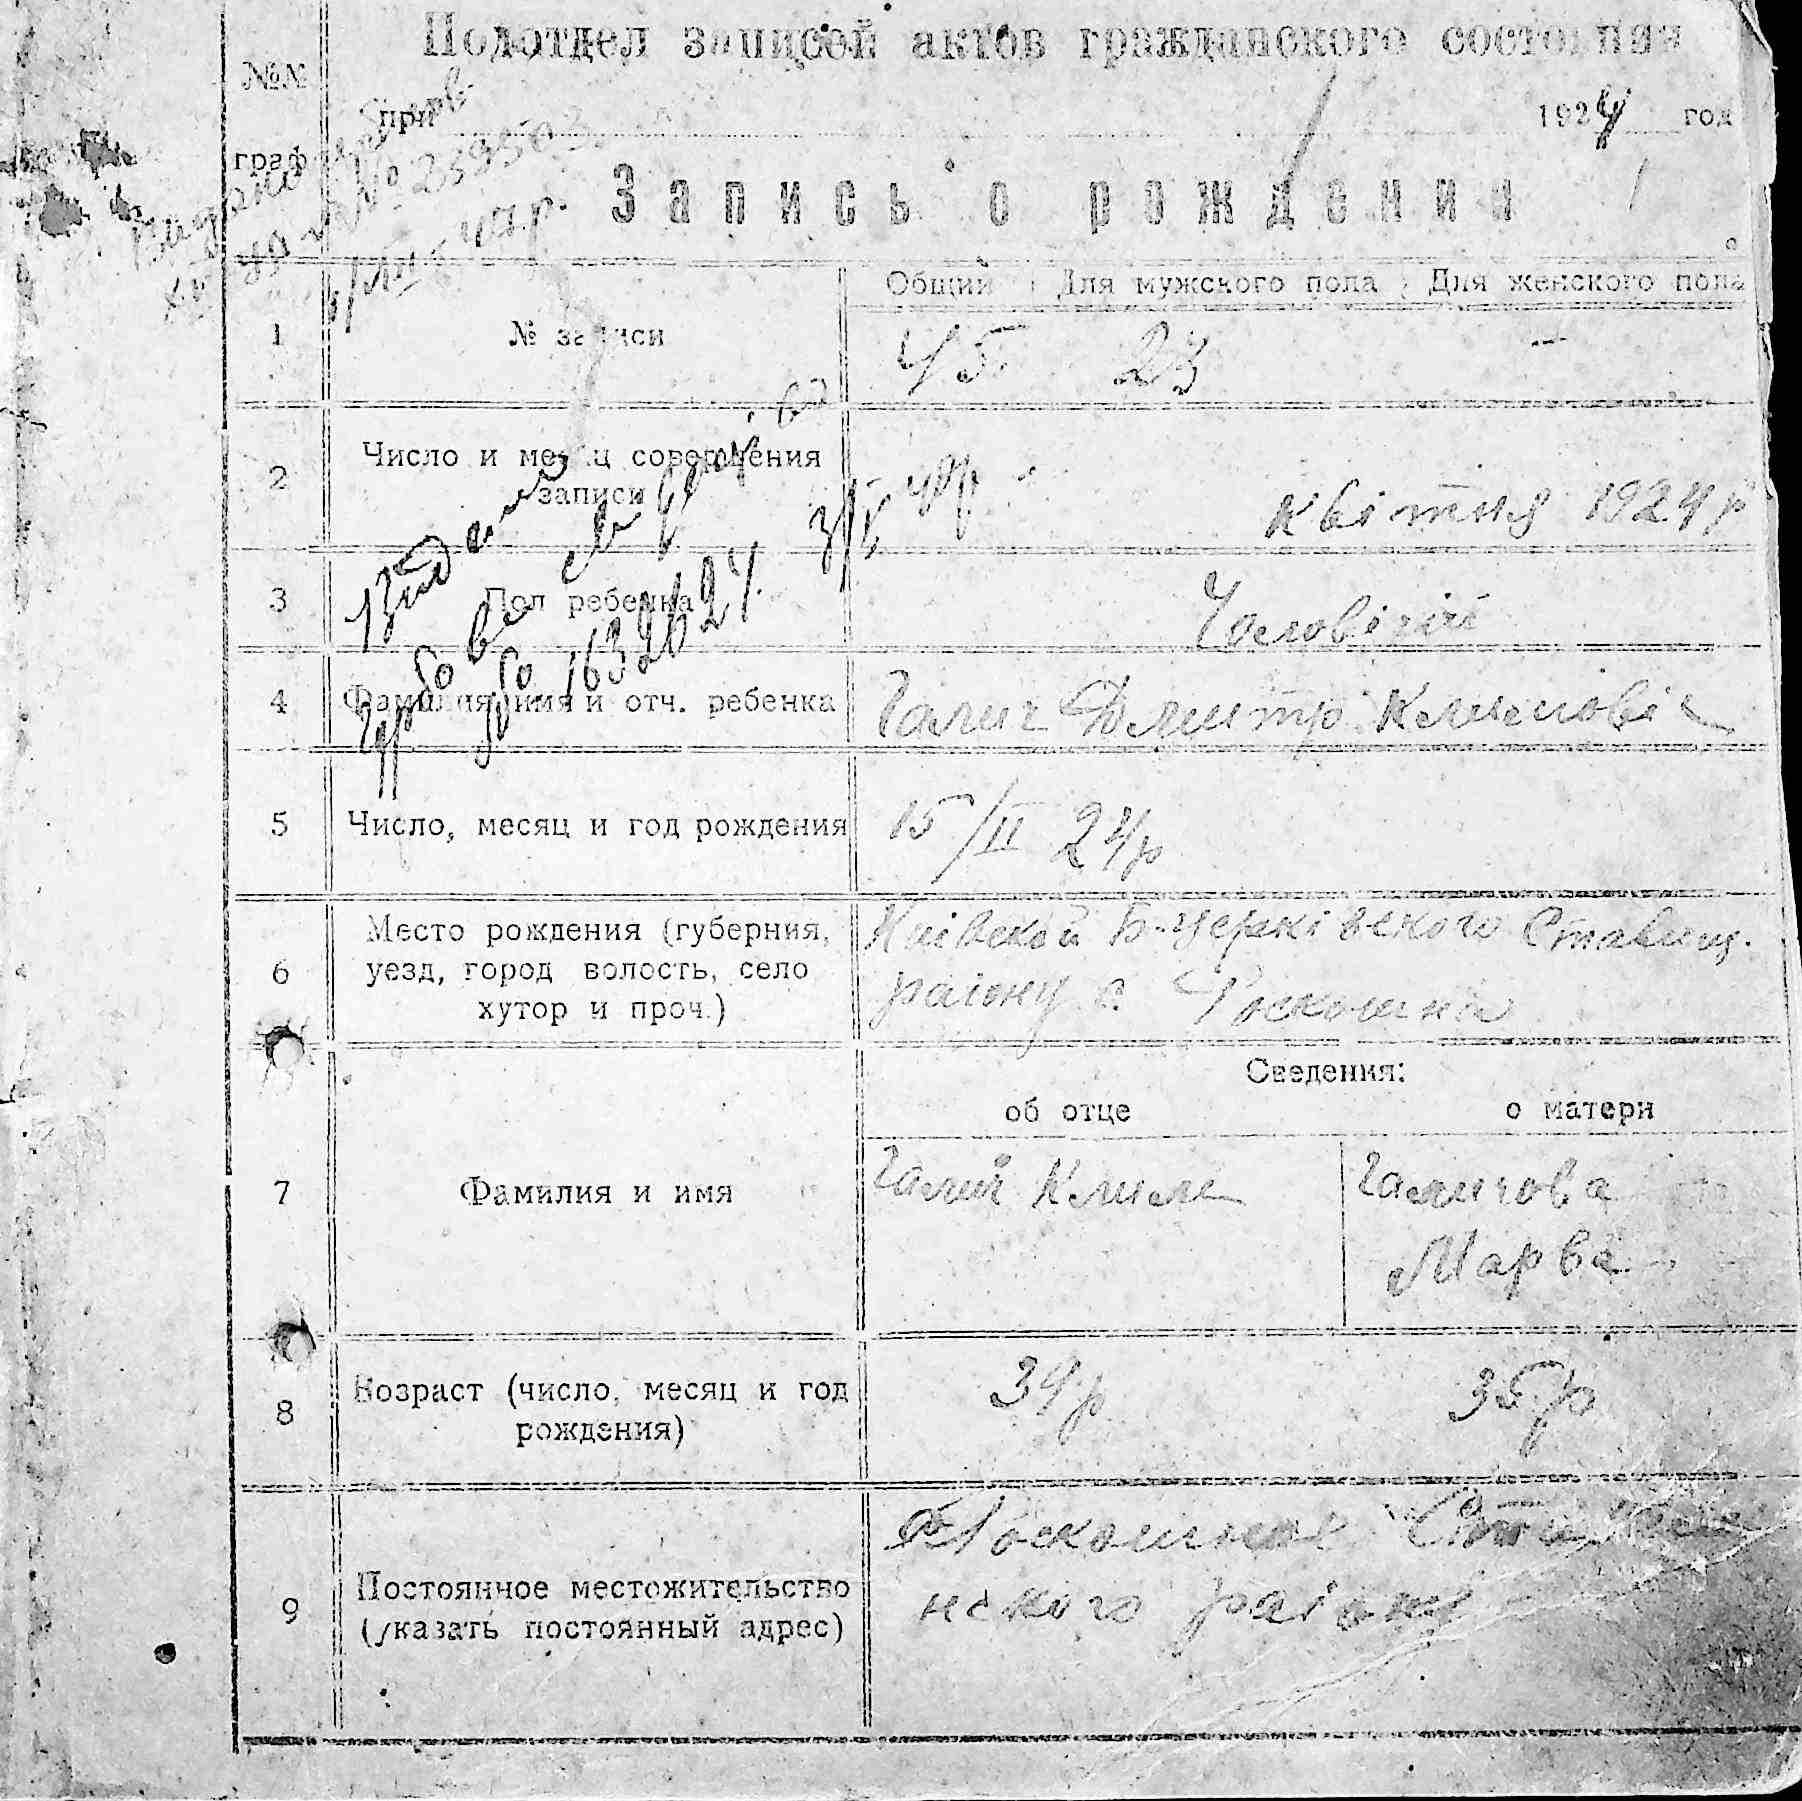 Подотдел записей актов гражданского состояния
№№ граф
при 1924 год
Запись о рождении
Общий Для мужского пола Для женского пола
1 № записи 45 23 —
2 Число и месяц совершения
записи квітня 1924 р
3 Пол ребенка Чоловічій
4 Фамилия, имя и отч. ребенка Галич Дмитро Климовіч
5 Число, месяц и год рождения 15/II 24р
6 Место рождения (губерния,
уезд, город волость, село
хутор и проч.)
Київской Б-церківского Ставищ.
району с. Роскошна
Сведения:
об отце о матери
7 Фамилия и имя Галич Клим Галичова
Марва
8 Возраст (число, месяц и год
рождения) 34р 35р
9 Постоянное местожительство
(указать постоянный адрес)
Роскошная
ского району
Видано
№ 1632627